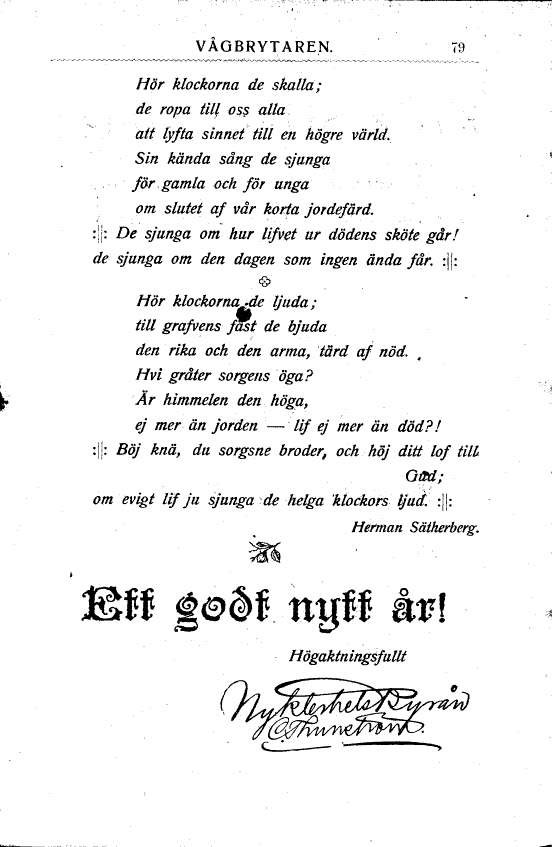 VÅGBRYTAREN. 79
Hör klockorna de skalla;
de ropa till oss alla
att lyfta sinnet till en högre värld.
Sin kända sång de sjunga
för gamla och för unga
om slutet af vår korta jordefärd.
:||: De sjunga om hur lifvet ur dödens sköte går!
de sjunga om den dagen som ingen ända får. :||:
Hör klockorna de ljuda;
till grafvens fäst de bjuda
den rika och den arma, tärd af nöd.
Hvi gråter sorgens öga?
Är himmelen den höga,
ej mer än jorden — lif ej mer än död?!
:||: Böj knä, du sorgsne broder, och höj ditt lof till
Gud;
om evigt lif ju sjunga de helga klockors ljud. :||:
Herman Sätherberg.
Ett godt nytt år!
Högaktningsfullt
Nykterhetsbyrån
C. Thunström.